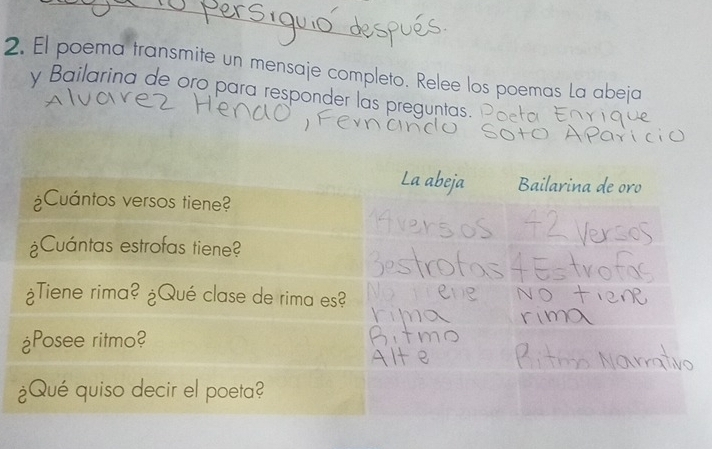 lo persiguió después.
2. El poema transmite un mensaje completo. Relee los poemas La abeja
y Bailarina de oro para responder las preguntas. Poeta Enrique
Alvarez Henao, Fernando Soto Aparicio
La abeja Bailarina de oro
¿Cuántos versos tiene? versos 42 Versos
¿Cuántas estrofas tiene? 3estrofas 4Estrofas
¿Tiene rima? ¿Qué clase de rima es? No NO tiene
rima rima
¿Posee ritmo? Ritmo
Alte Ritmo Narrativo
¿Qué quiso decir el poeta?